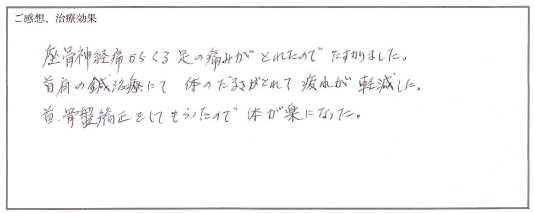 ご感想、治療効果
座骨神経痛からくる足の痛みがとれたのでたすかりました。
首肩の鍼治療にて 体のだるさがとれて疲れが軽減した。
首.骨盤矯正をしてもらったので体が楽になった。